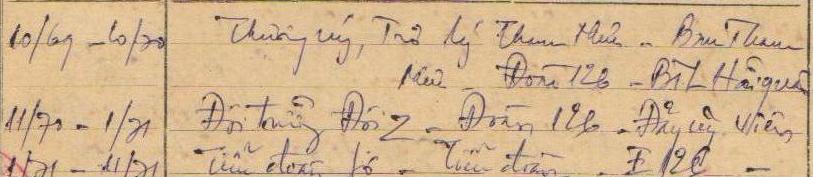 10/69 - 10/70 Thượng úy, Trợ lý Tham Mưu - Ban Tham
Mưu - Đoàn 126 - BTL Hải quân
11/70 - 1/71 Đội trưởng Đội 2 - Đoàn 126 - Đảng ủy viên
1/71 - 11/71 Tiểu đoàn - Tiểu đoàn - 126 -